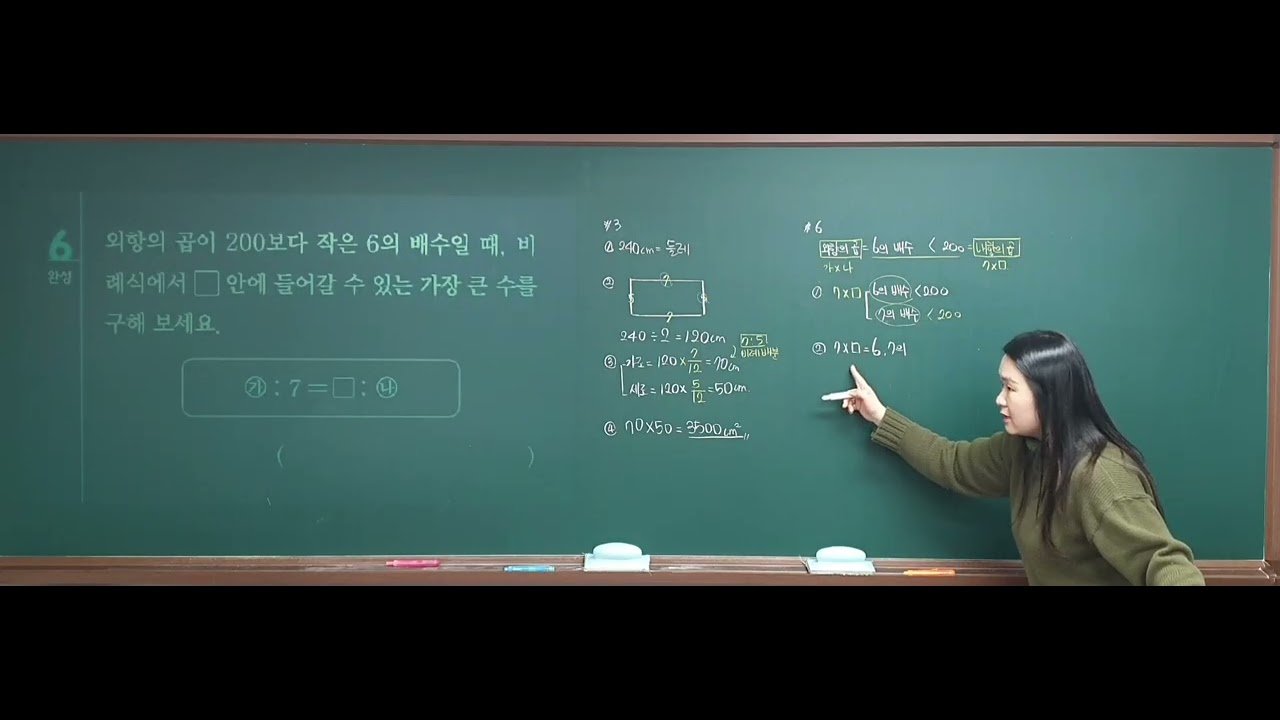 6
완성
외항의 곱이 200보다 작은 6의 배수일 때, 비
례식에서 □ 안에 들어갈 수 있는 가장 큰 수를
구해 보세요.
㉮ : 7 = □ : ㉯
( )
#3
① 240cm = 둘레
②
7
5
5
7
240 ÷ 2 = 120cm
7:5
비례배분
③ 가로 = 120 × 7/12 = 70cm
세로 = 120 × 5/12 = 50cm.
④ 70×50 = 3500cm²
#6
외항의 곱 = 6의 배수 < 200 = 내항의 곱
가×나
7×□
① 7×□ 6의 배수 < 200
7의 배수 < 200
② 7×□ = 6, 7의